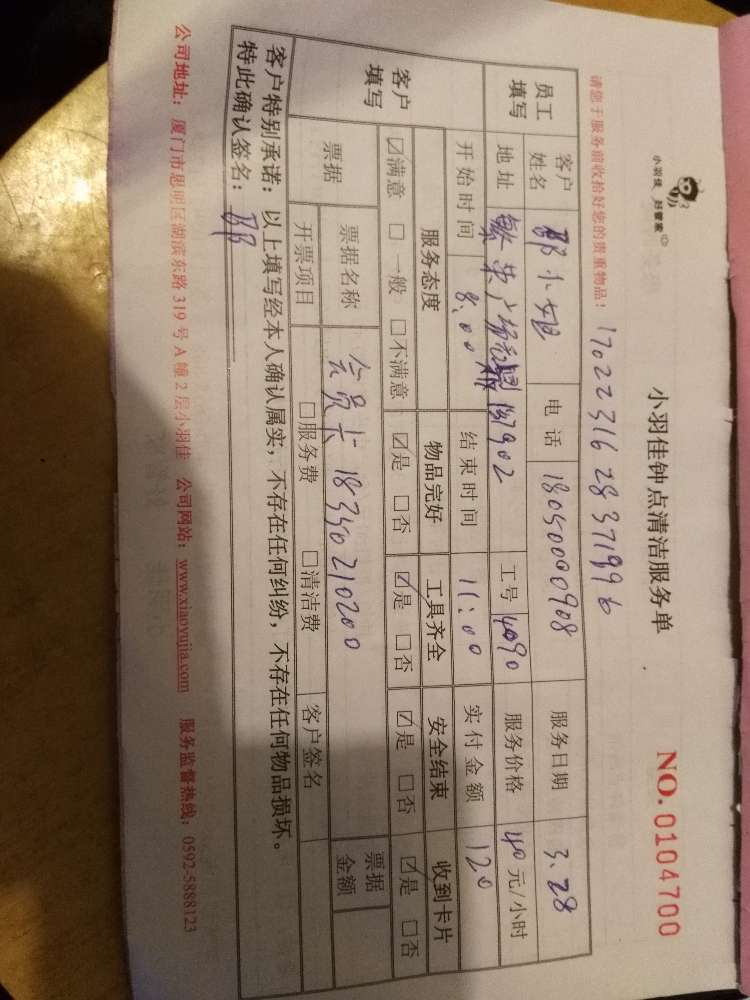 小羽佳 好管家
小羽佳钟点清洁服务单
NO. 0104700
请您于服务前收拾好您的贵重物品! 17022316 28371996
员工填写 客户姓名 郡小姐 电话 18050000908 服务日期 3.28
地址 繁荣广场 902 工号 4090 服务价格 40 元/小时
开始时间 8:00 结束时间 11:00 实付金额 120
客户填写 服务态度 物品完好 工具齐全 安全结束 收到卡片
☑满意 □一般 □不满意 ☑是 □否 ☑是 □否 ☑是 □否 ☑是 □否
票据 票据名称 会员卡 18350210200 票据金额
开票项目 □服务费 □清洁费 客户签名
客户特别承诺：以上填写经本人确认属实，不存在任何纠纷，不存在任何物品损坏。
特此确认签名：
公司地址：厦门市思明区湖滨东路 319 号 A 幢 2 层小羽佳 公司网站：www.xiaoyujia.com 服务监督热线：0592-5888123